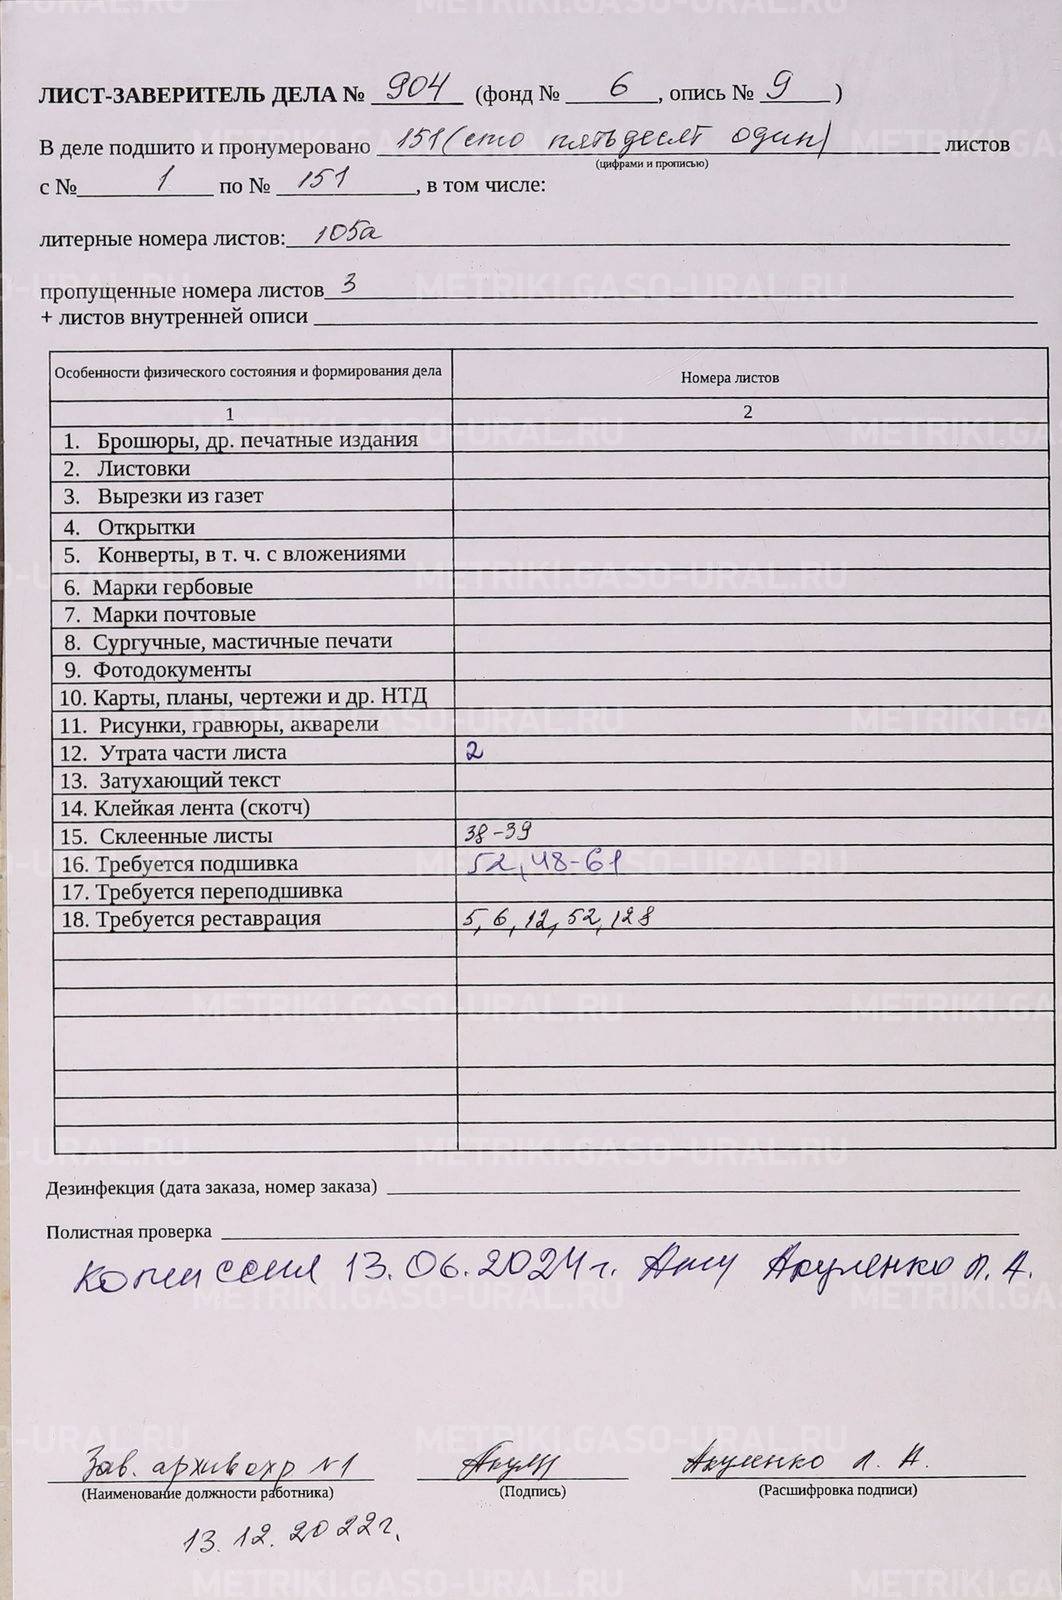 ЛИСТ-ЗАВЕРИТЕЛЬ ДЕЛА № 904 (фонд № 6, опись № 9)
В деле подшито и пронумеровано 151 (сто пятьдесят один) листов
(цифрами и прописью)
с № 1 по № 151, в том числе:
литерные номера листов: 105а
пропущенные номера листов 3
+ листов внутренней описи
Особенности физического состояния и формирования дела Номера листов
1 2
1. Брошюры, др. печатные издания
2. Листовки
3. Вырезки из газет
4. Открытки
5. Конверты, в т. ч. с вложениями
6. Марки гербовые
7. Марки почтовые
8. Сургучные, мастичные печати
9. Фотодокументы
10. Карты, планы, чертежи и др. НТД
11. Рисунки, гравюры, акварели
12. Утрата части листа 2
13. Затухающий текст
14. Клейкая лента (скотч)
15. Склеенные листы 38-39
16. Требуется подшивка 52, 48-61
17. Требуется переподшивка
18. Требуется реставрация 5, 6, 12, 52, 128
Дезинфекция (дата заказа, номер заказа)
Полистная проверка
комиссия 13.06.2024 г. Акуленко Л. А.
Зав. архивохр №1 Акуленко Л. А.
(Наименование должности работника) (Подпись) (Расшифровка подписи)
13.12.2022 г.
METRIKI.GASO-URAL.RU